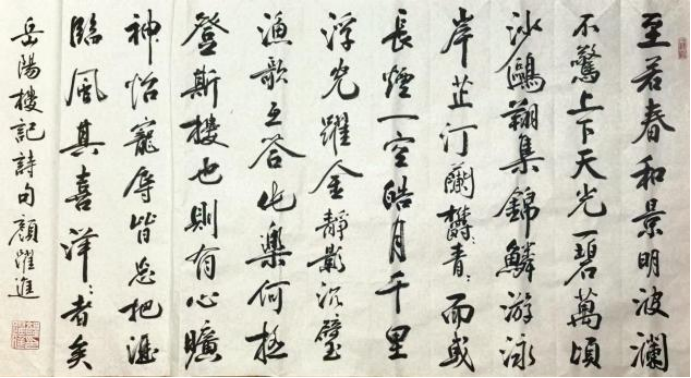 至若春和景明波瀾
不驚上下天光一碧萬頃
沙鷗翔集錦鱗游泳
岸芷汀蘭欝〻青〻而或
長煙一空皓月千里
浮光躍金靜影沉璧
漁歌互答此樂何極
登斯樓也則有心曠
神怡寵辱皆忘把酒
臨風其喜洋〻者矣
岳陽樓記詩句顏躍進